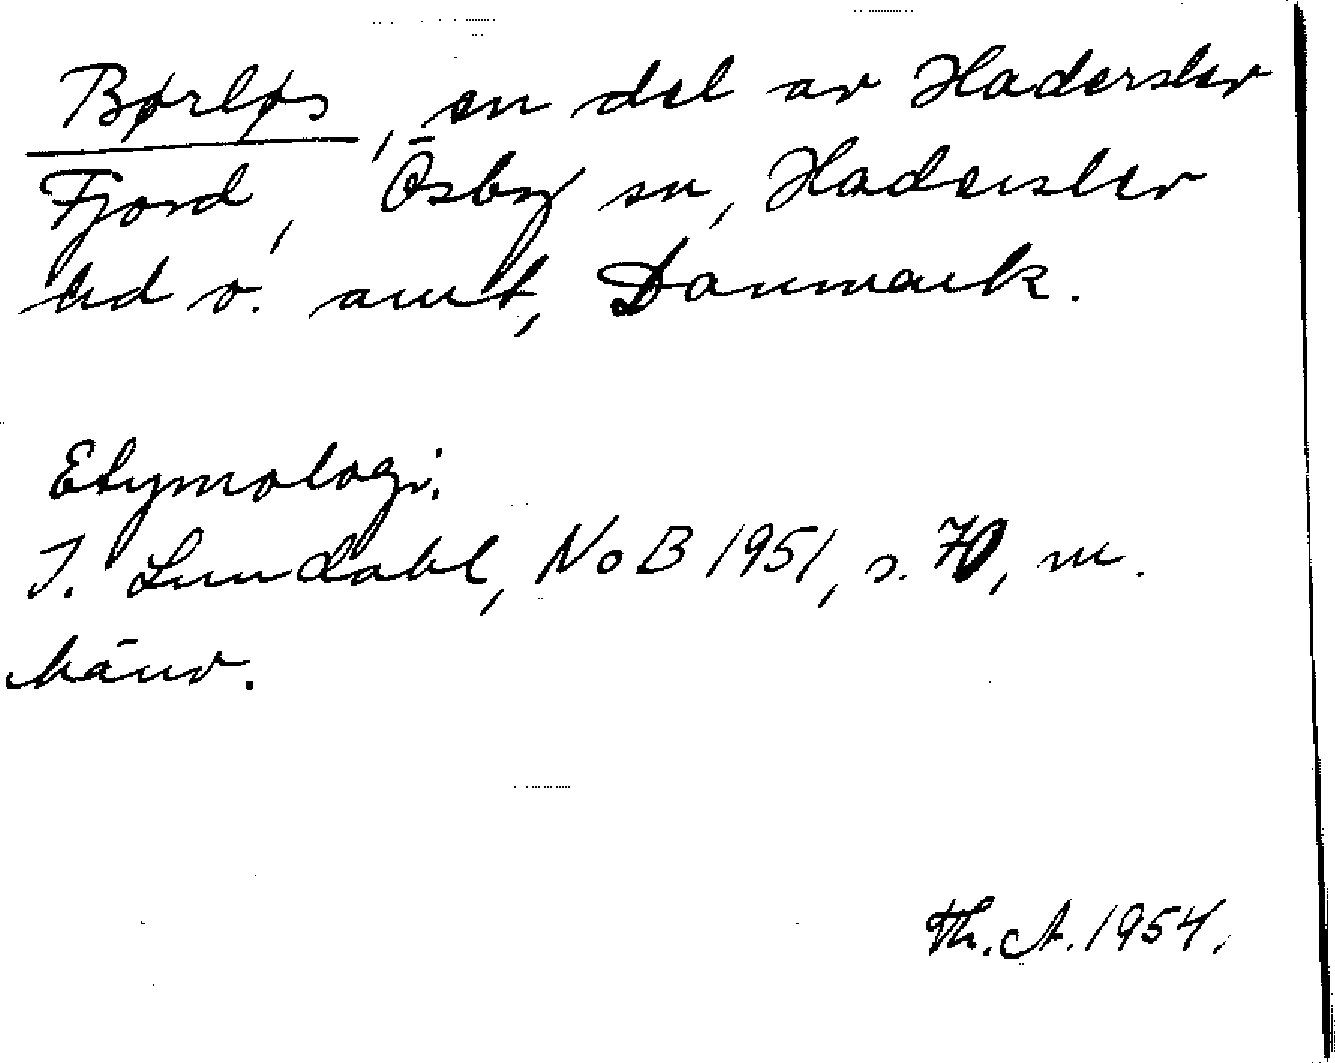 Børløs, en del av Haderslev
Fjord, Ösby sn, Haderslev
hd o. amt, Danmark.
Etymologi.
I. Lundahl, NoB 1951, s. 70, m.
hänv.
Th. A. 1954.